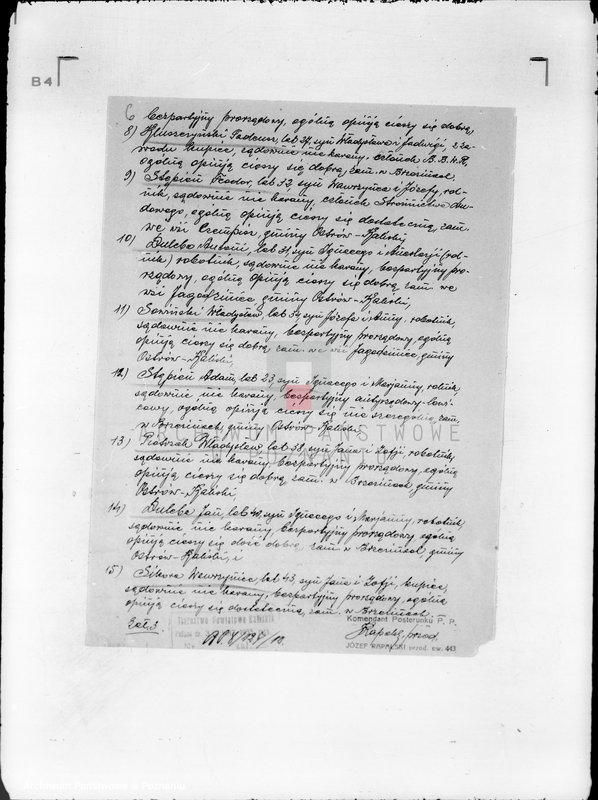 B4
6 bezpartyjny prorządowy, ogólną opinją cieszy się dobrą,
8) Tadeusz, lat 27, syn Władysława i Jadwigi, z za-
wodu kupiec, sądownie nie karany, członek B.B.W.R,
ogólną opinją cieszy się dobrą, zam. w Brzezinach,
9) Stępień Teodor, lat 32, syn Wawrzyńca i Józefy, rol-
nik, sądownie nie karany, członek Stronnictwa Lu-
dowego, ogólną opinją cieszy się dostateczną, zam.
we wsi Czempisz, gminy Ostrów-Kaliski,
10) Duleba Antoni, lat 31, syn Ignacego i Anastazji (rol-
nik) robotnik, sądownie nie karany, bezpartyjny pro-
rządowy, ogólną opinją cieszy się dobrą zam. we
wsi Jagodziniec gminy Ostrów-Kaliski,
11) Władysław, lat 34, syn Józefa i Anny, robotnik,
sądownie nie karany, bezpartyjny prorządowy, ogólną
opinją cieszy się dobrą, zam. we wsi Jagodziniec gminy
Ostrów-Kaliski,
12) Stępień Adam, lat 23, syn Ignacego i Marjanny, rolnik,
sądownie nie karany, bezpartyjny antyrządowy-
ogólną opinją cieszy się nie szczególną, zam.
w Brzezinach gminy Ostrów Kaliski,
13) Pietrzak Władysław lat 38, syn Jana i Zofji, robotnik,
sądownie nie karany, bezpartyjny prorządowy, ogólną
opinją cieszy się dobrą, zam. w Brzezinach gminy
Ostrów-Kaliski,
14) Duleba Jan, lat 40, syn Ignacego i Marjanny, robotnik
sądownie nie karany, bezpartyjny prorządowy, ogólną
opinją cieszy się dość dobrą, zam. w Brzezinach gminy
Ostrów-Kaliski, i
15) Sikora Wawrzyniec, lat 43, syn Jana i Zofji, kupiec,
sądownie nie karany, bezpartyjny prorządowy, ogólną
opinją cieszy się dostateczną, zam. w Brzezinach.
Zał. 3.
Starostwo Powiatowe Kaliskie
Komendant Posterunku P. P.
Rapalski, przod.
JÓZEF RAPALSKI przod. ew. 443
ARCHIWUM PAŃSTWOWE
W POZNANIU
Archiwum Państwowe w Poznaniu